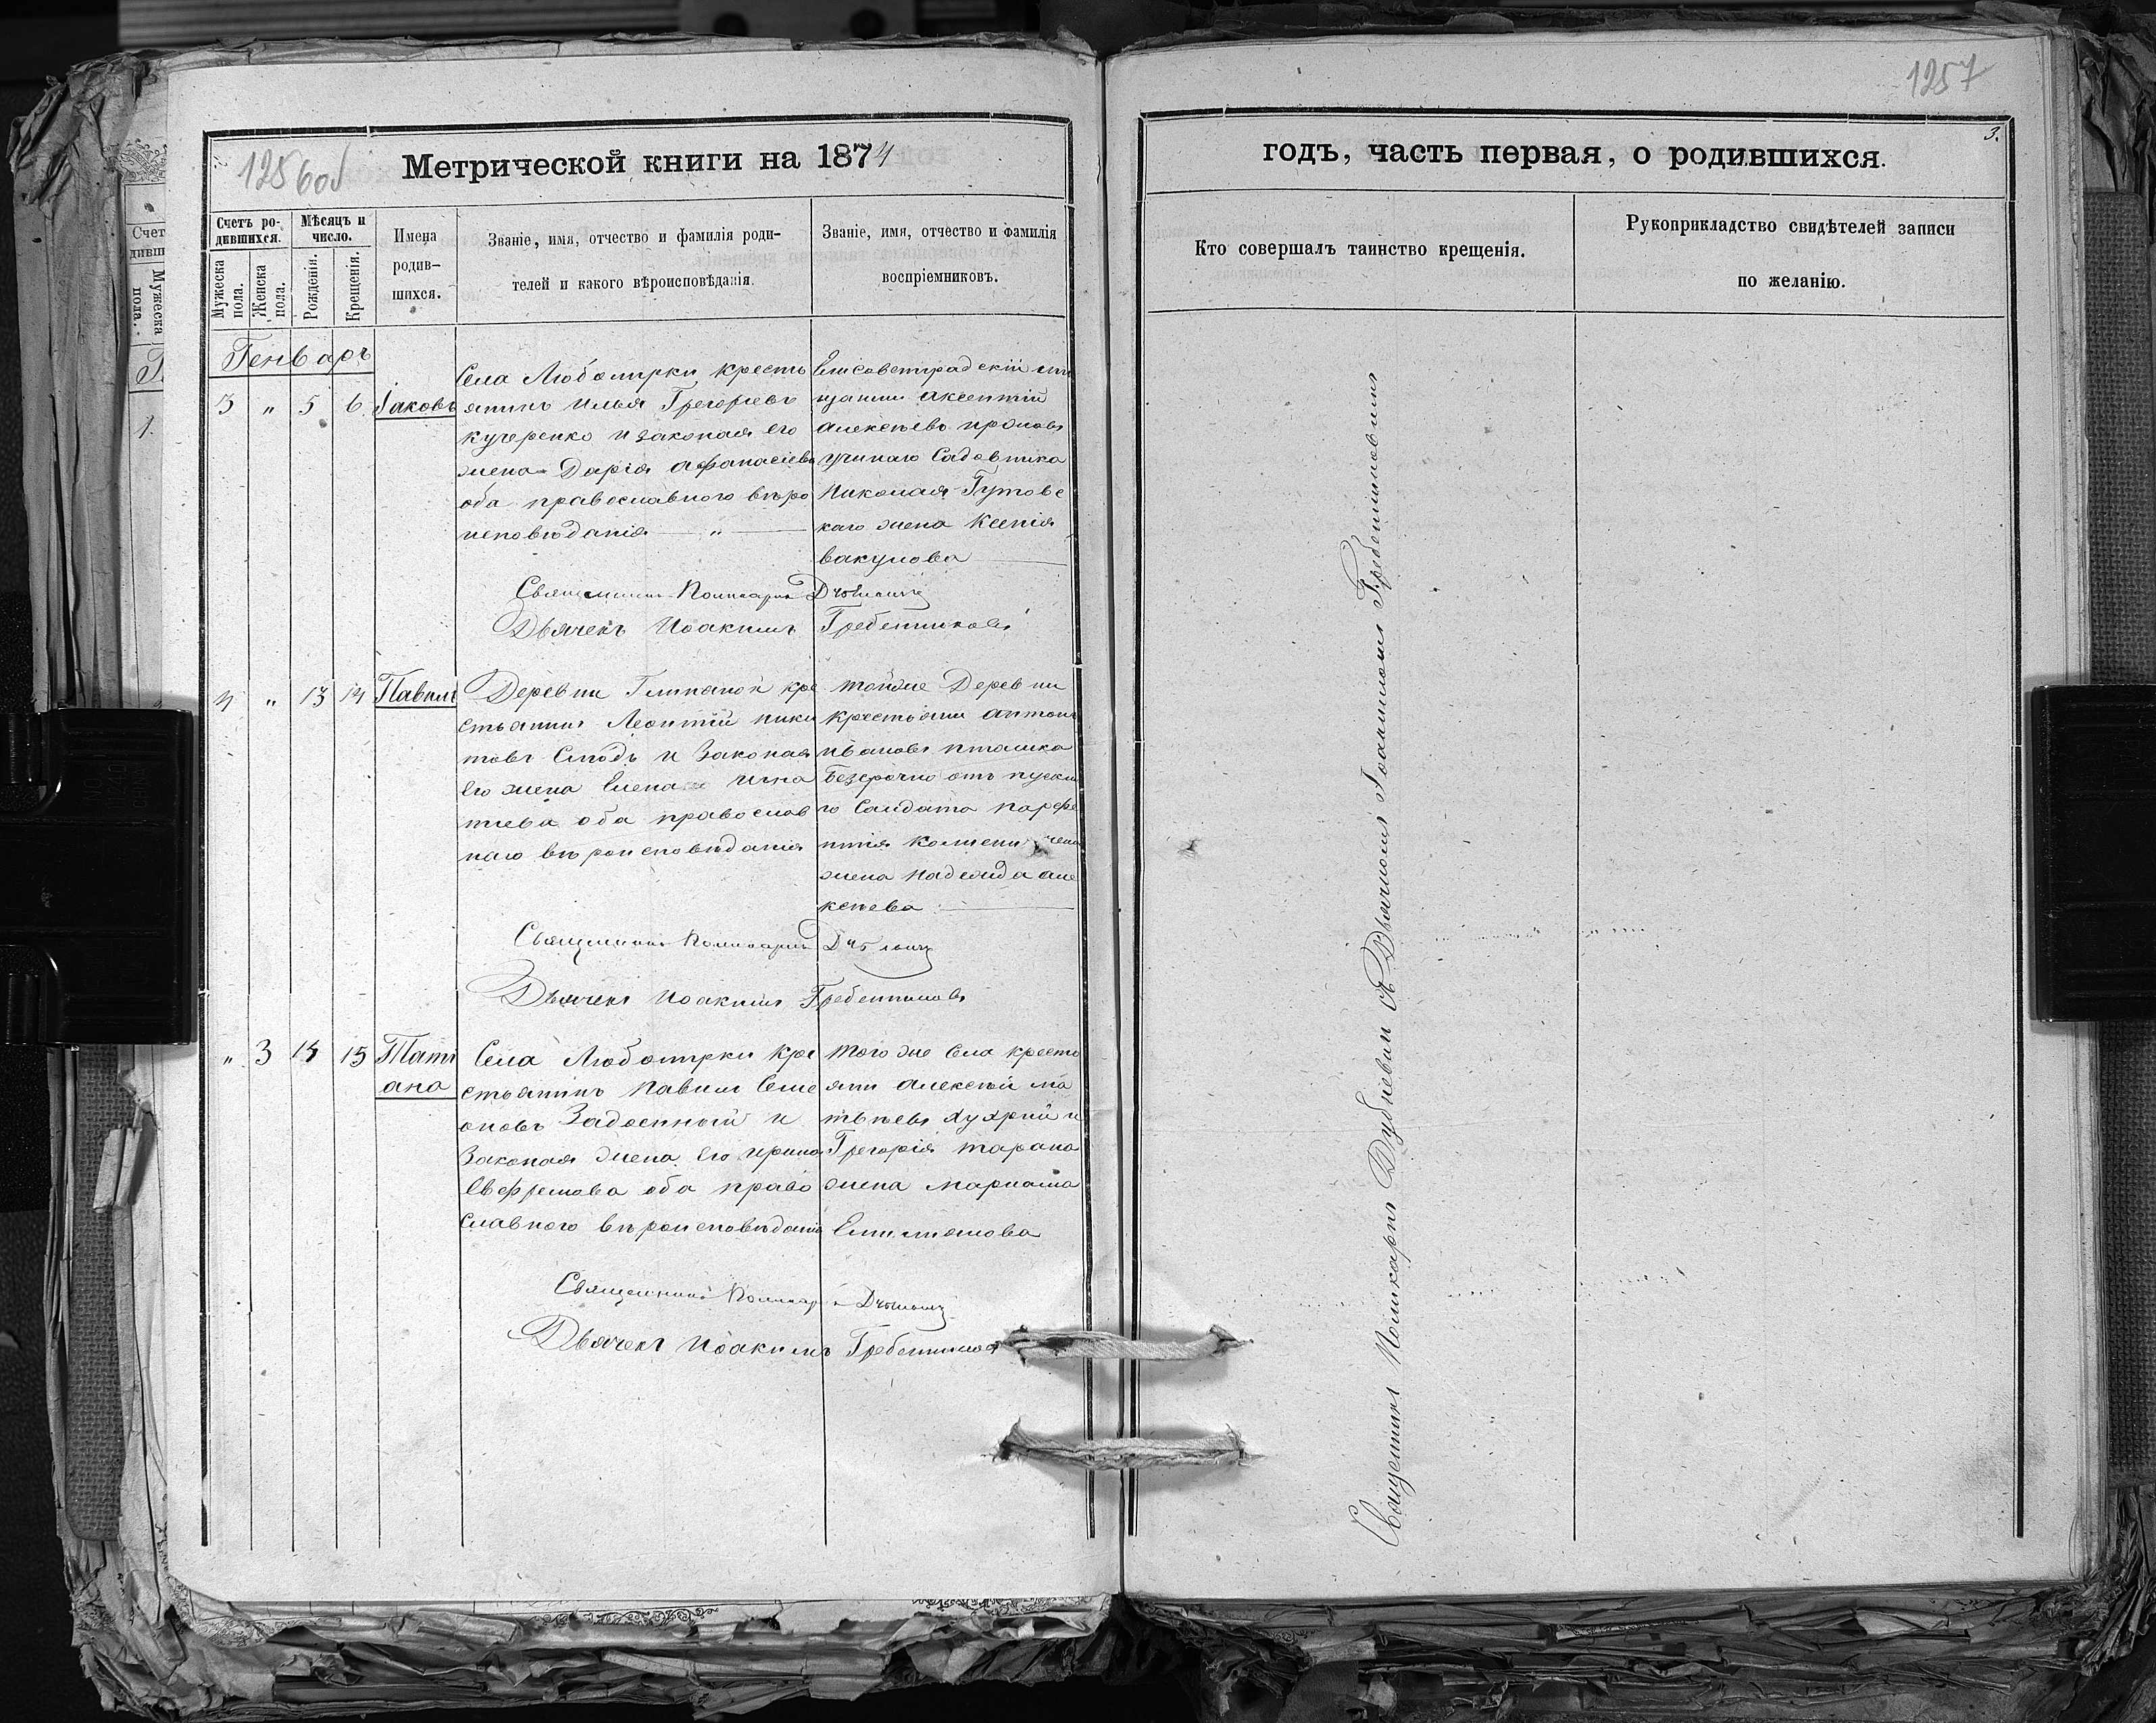 1256об
Метрической книги на 1874
Счетъ ро-
дившихся.
Мѣсяцъ и
число.
Мужеска
пола.
Женска
пола.
Рожденія.
Крещенія.
Имена
родив-
шихся.
Званіе, имя, отчество и фамилія роди-
телей и какого вѣроисповѣданія.
Званіе, имя, отчество и фамилія
воспріемниковъ.
Генварь
3 " 5 6 Іаковъ
Села Любомирки кресть
янинъ Илья Григорьевъ
Кучеренко и законая его
жена Дарія Афанасіева
оба православного вѣро
исповѣданія "
Елисаветградскій мѣ
щанин Аксентій
Алексѣевъ
Садовника
Николая Гутовс
каго жена Ксенія
Вакулова
Священникъ Поликарпъ
Дьячекъ Иоакимъ Гребенниковъ
4 " 13 14 Павилъ
Деревни кре
стьянинъ Леонтій Ники
товъ и Законая
Его жена Елена Игна
тиева оба православ
наго вѣроисповѣданія
тойже Деревни
крестьянин Антонъ
Ивановъ Пташка
Безсрочно отъпускн
го Солдата Парфе
нтія
жена Надежда Але
ксѣева
Священникъ Поликарпъ
Дьячекъ Иоакимъ Гребенниковъ
" 3 14 15 Тати
ана
Села Любомирки кре
стьянинъ Павилъ Симе
оновъ Задоенный и
Законая жена его Ирина
Евфремова оба право
славного вѣроисповѣданія
того же Села кресть
янин Алексѣй Ма
твѣевъ Хухрій и
Григорія Тарана
жена Мариама
Емилианова
Священникъ Поликарпъ
Дьячекъ Иоакимъ Гребенниковъ
1257
3.
годъ, часть первая, о родившихся.
Кто совершалъ таинство крещенія.
Рукоприкладство свидѣтелей записи
по желанію.
Священникъ Поликарпъ Дубневич Дьячкомъ Іоакимомъ Гребенниковымъ
Счет
дивш
Мужеска
пола.
1.